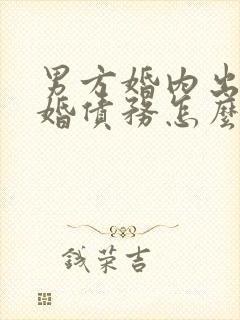 男方婚内出
婚债务怎麼
钱荣吉